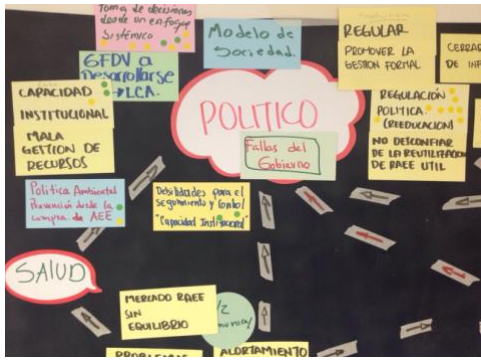 Toma de decisiones
desde un enfoque
Sistémico
Modelo de
Sociedad.
REGULAR
PROMOVER LA
GESTION FORMAL
CERRAR
DE INF
GFDV a
Desarrollarse
LCA.
CAPACIDAD
INSTITUCIONAL
MALA
GESTION DE
RECURSOS
POLITICO
Fallas del
Gobierno
REGULACIÓN
POLITICA
(REEDUCACION)
NO DESCONFIAR
DE LA REUTILIZACION
DE RAEE UTIL
Politica Ambiental
Prevención desde la
compra de AEE
Debilidades para el
seguimiento y Control
"Capacidad Institucional"
SALUD
MERCADO RAEE
SIN
EQUILIBRIO
1/2
PROBLEMAS
ALORTAMIENTO